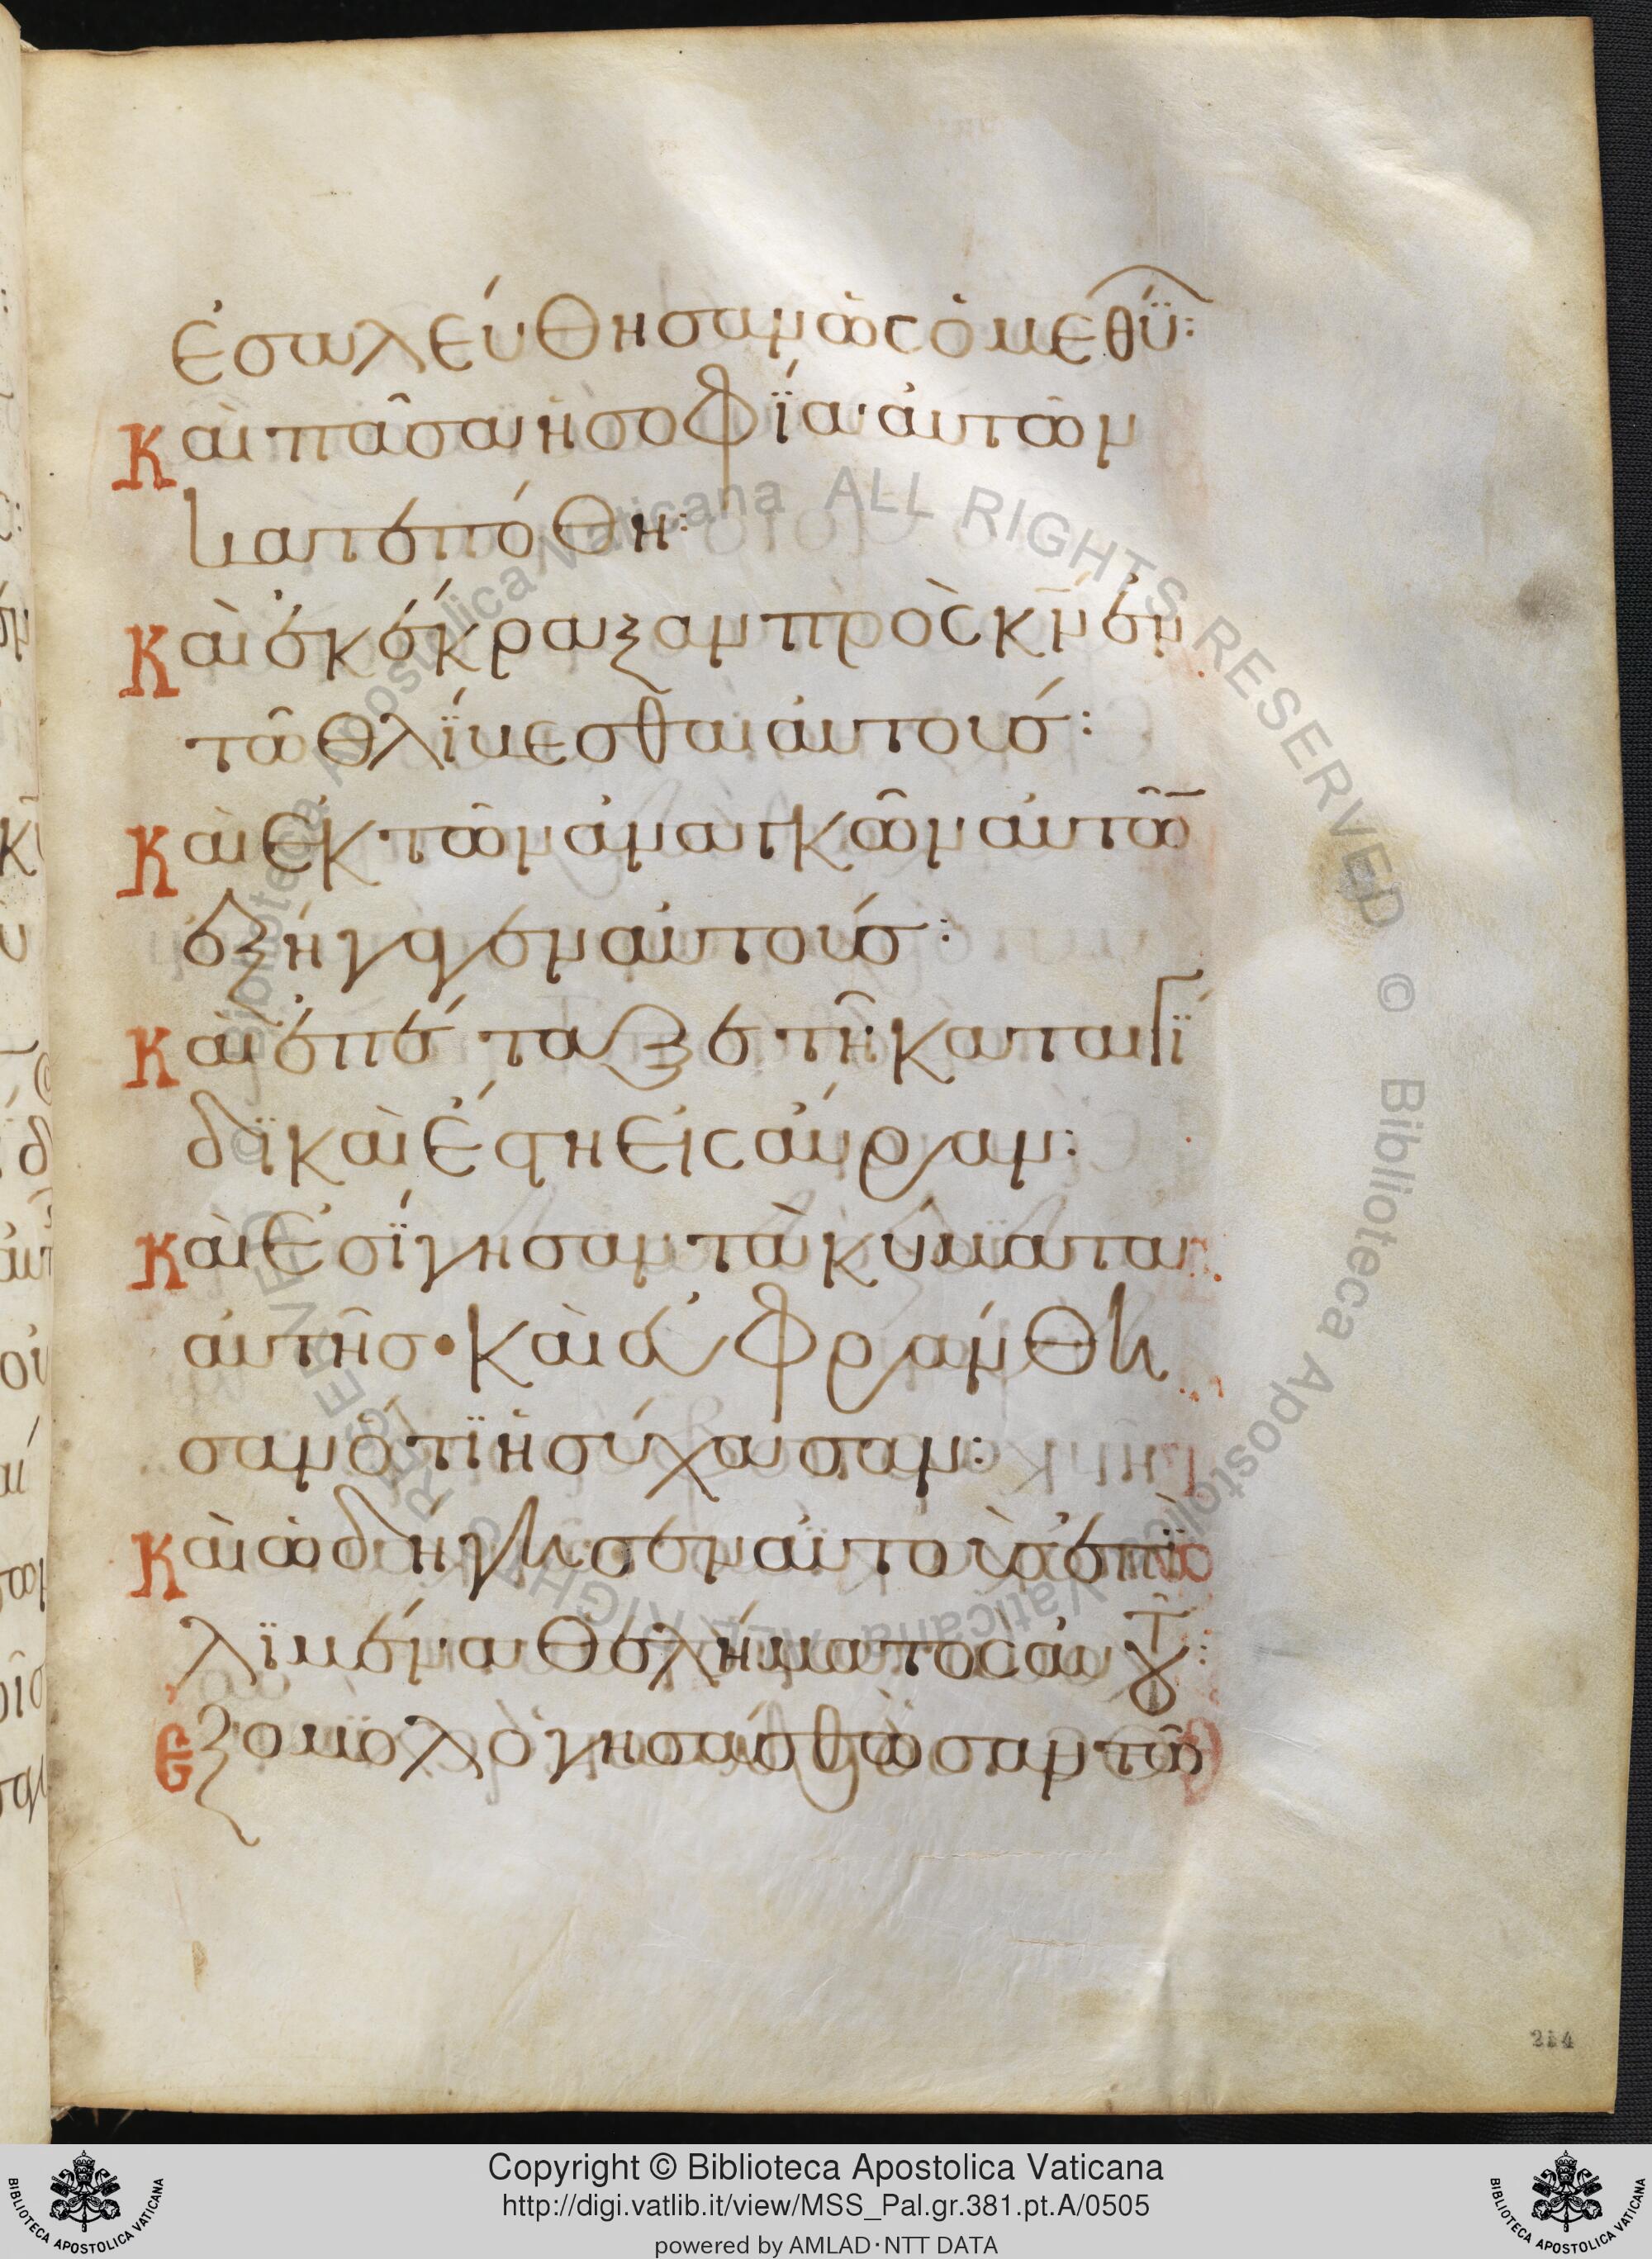 ἐσαλεύθησαν ὡς ὁ μεθύ:
Καὶ πᾶσα ἡ σοφΐα αὐτῶν
κατεπόθη:
Καὶ ἐκέκραξαν πρὸς κ̅ν̅ ἐν
τῶ θλΐμεσθαι αὐτούσ:
Καὶ ἐκ τῶν ἀναγκῶν αὐτῶ̅
ἐξήγαγεν αὐτούσ:
Καὶ ἐπέταξε τῆ καταιγΐ
δϊ καὶ ἔστη εἰς αὔραν:
Καὶ ἐσΐγησαν τὰ κύματα
αὐτῆσ· καὶ εὐφράνθη
σαν ὅτϊ ἡσύχασαν:
Καὶ ὡδήγησεν αὐτοὺσ ἐπῒ
λϊμένα θελήματος αὐτοῦ:
Εξομολογησάσθωσαν τῶ
214
Copyright © Biblioteca Apostolica Vaticana
http://digi.vatlib.it/view/MSS_Pal.gr.381.pt.A/0505
powered by AMLAD·NTT DATA
BIBLIOTECA APOSTOLICA VATICANA
BIBLIOTECA APOSTOLICA VATICANA
Biblioteca Apostolica Vaticana ALL RIGHTS RESERVED ©
Biblioteca Apostolica Vaticana ALL RIGHTS RESERVED ©